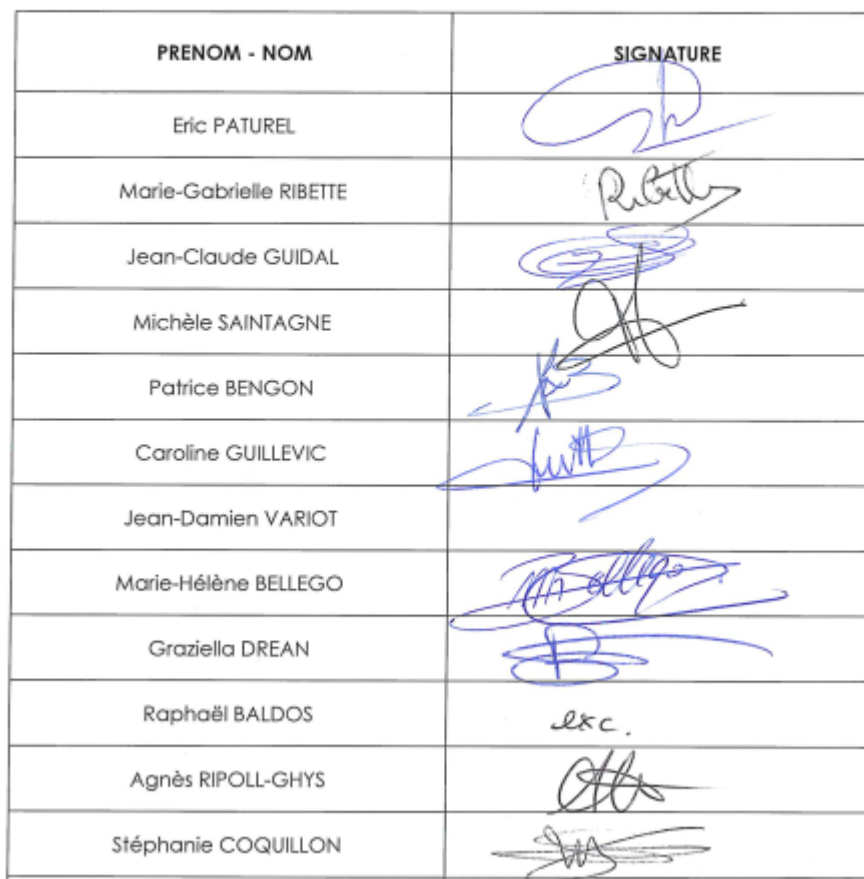 PRENOM - NOM SIGNATURE
Eric PATUREL
Marie-Gabrielle RIBETTE Ribette
Jean-Claude GUIDAL
Michèle SAINTAGNE
Patrice BENGON
Caroline GUILLEVIC
Jean-Damien VARIOT
Marie-Hélène BELLEGO MHBellego
Graziella DREAN
Raphaël BALDOS exc.
Agnès RIPOLL-GHYS
Stéphanie COQUILLON